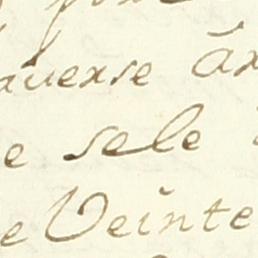 auerse
e sele
e Veinte